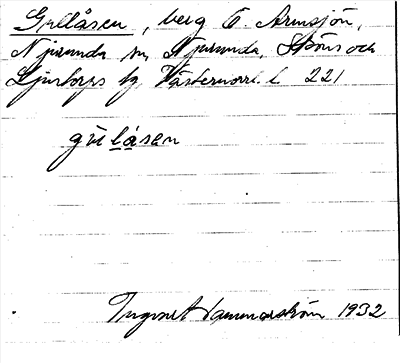 Gullåsen, berg Ö. Armsjön,
Njurunda sn, Njurunda, Sköns och
Ljustorps tg Västernorrl. l. 221
gu̇låsen
Ingvar Hammarström 1932